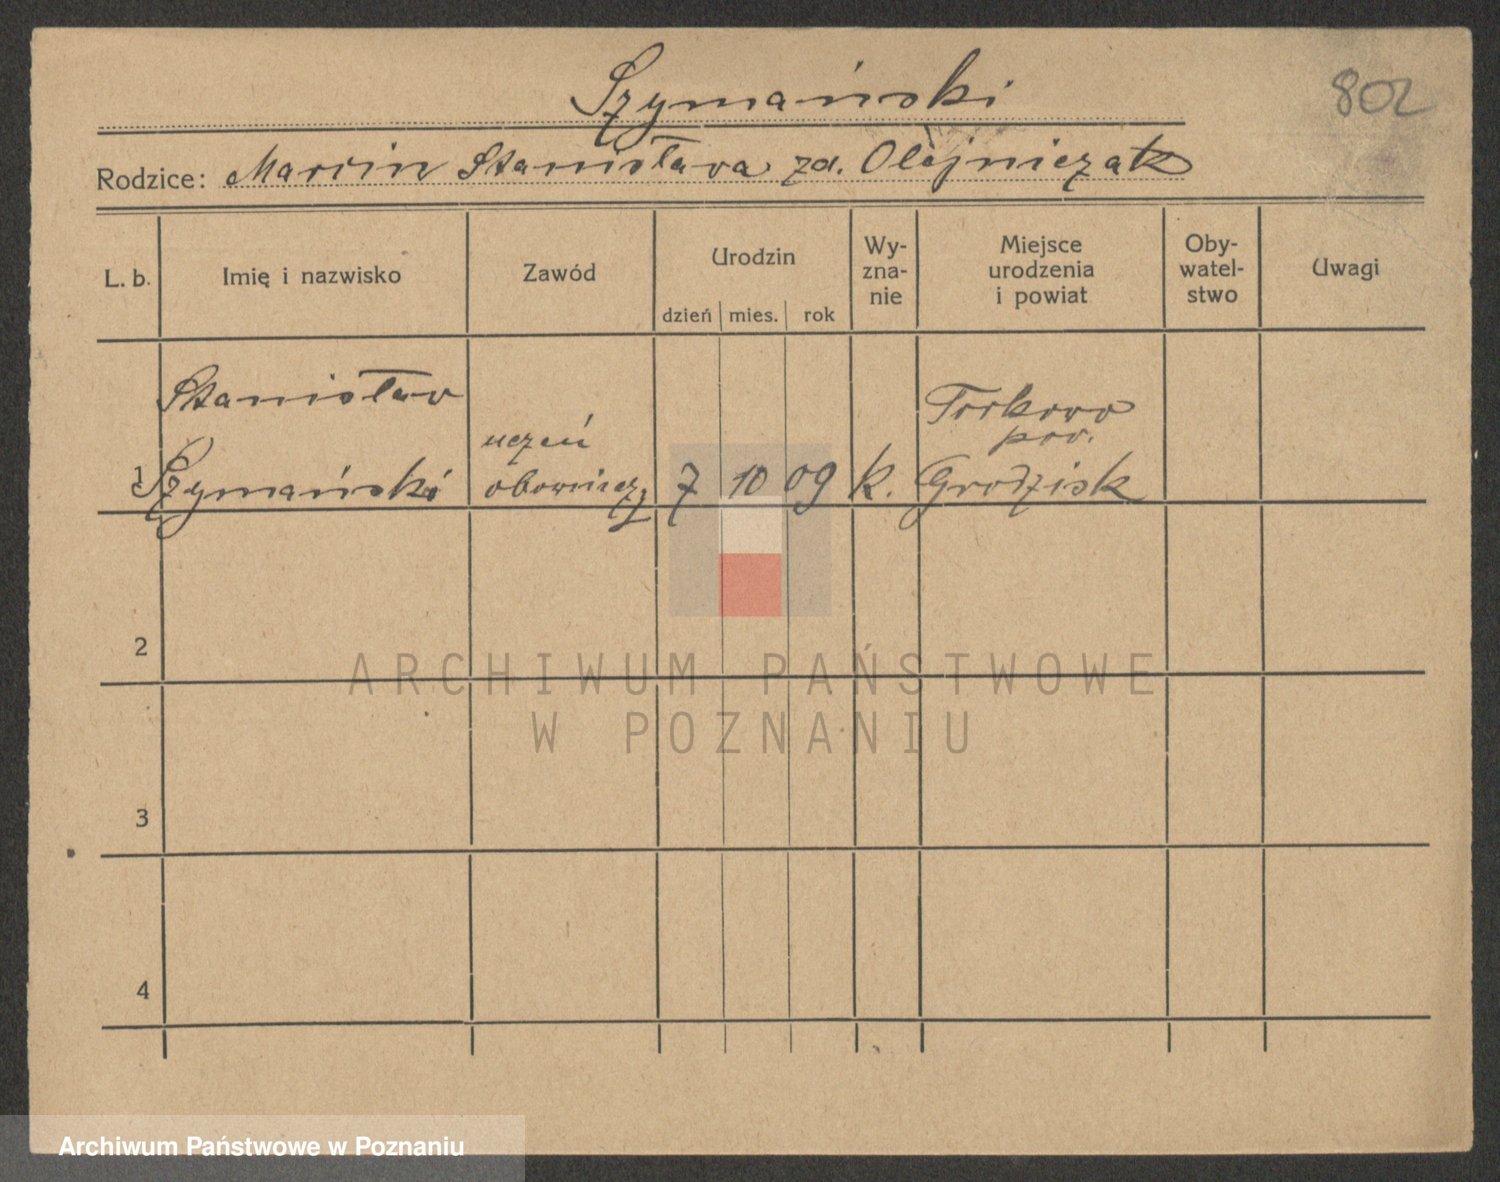 Szymański
802
Rodzice: Marcin Stanisława zd. Olejniczak
L. b.
Imię i nazwisko
Zawód
Urodzin
dzień mies. rok
Wy-
zna-
nie
Miejsce
urodzenia
i powiat
Oby-
watel-
stwo
Uwagi
1
Stanisław
Szymański
uczeń
7 10 09
k.
pow.
Grodzisk
2
3
4
ARCHIWUM PAŃSTWOWE
W POZNANIU
Archiwum Państwowe w Poznaniu